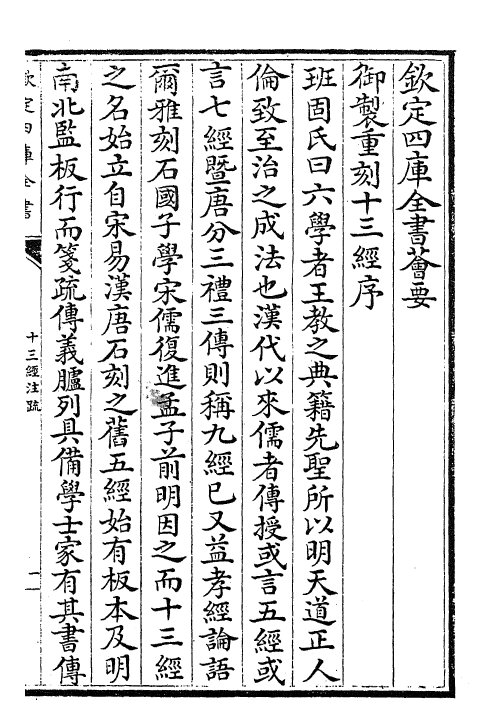 欽定四庫全書薈要
御製重刻十三經序
班固氏曰六學者王教之典籍先聖所以明天道正人
倫致至治之成法也漢代以來儒者傳授或言五經或
言七經暨唐分三禮三傳則稱九經已又益孝經論語
爾雅刻石國子學宋儒復進孟子前明因之而十三經
之名始立自宋易漢唐石刻之舊五經始有板本及明
南北監板行而箋疏傳義臚列具備學士家有其書傳
欽定四庫全書
十三經注疏
一